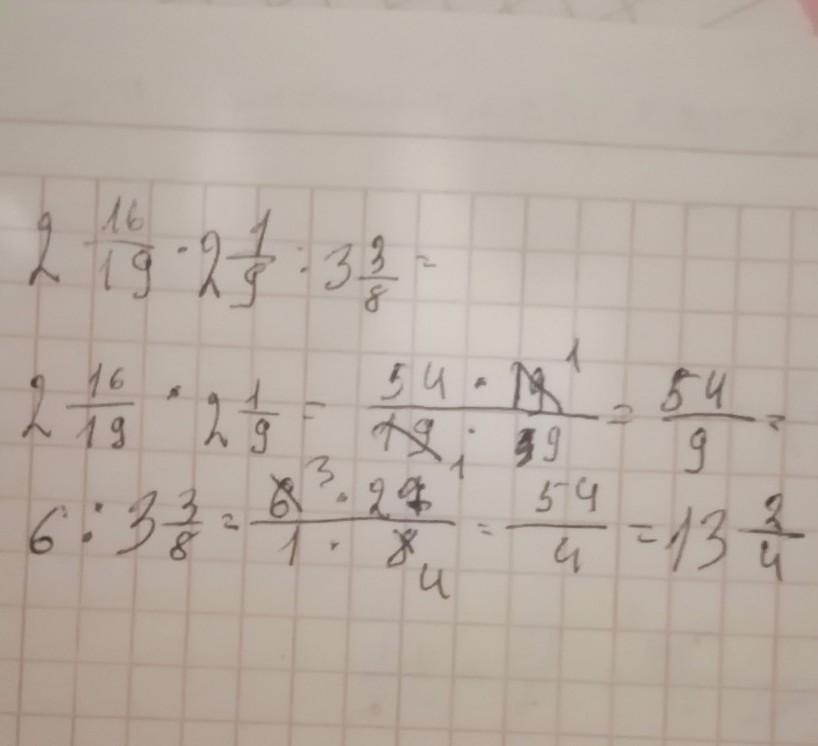 2 16/19 · 2 1/9 : 3 3/8 =
2 16/19 · 2 1/9 = 54 · 19 1 / 19 1 · 9 = 54/9 =
6 : 3 3/8 = 6 3 · 27 / 1 · 8 4 = 54/4 = 13 2/4